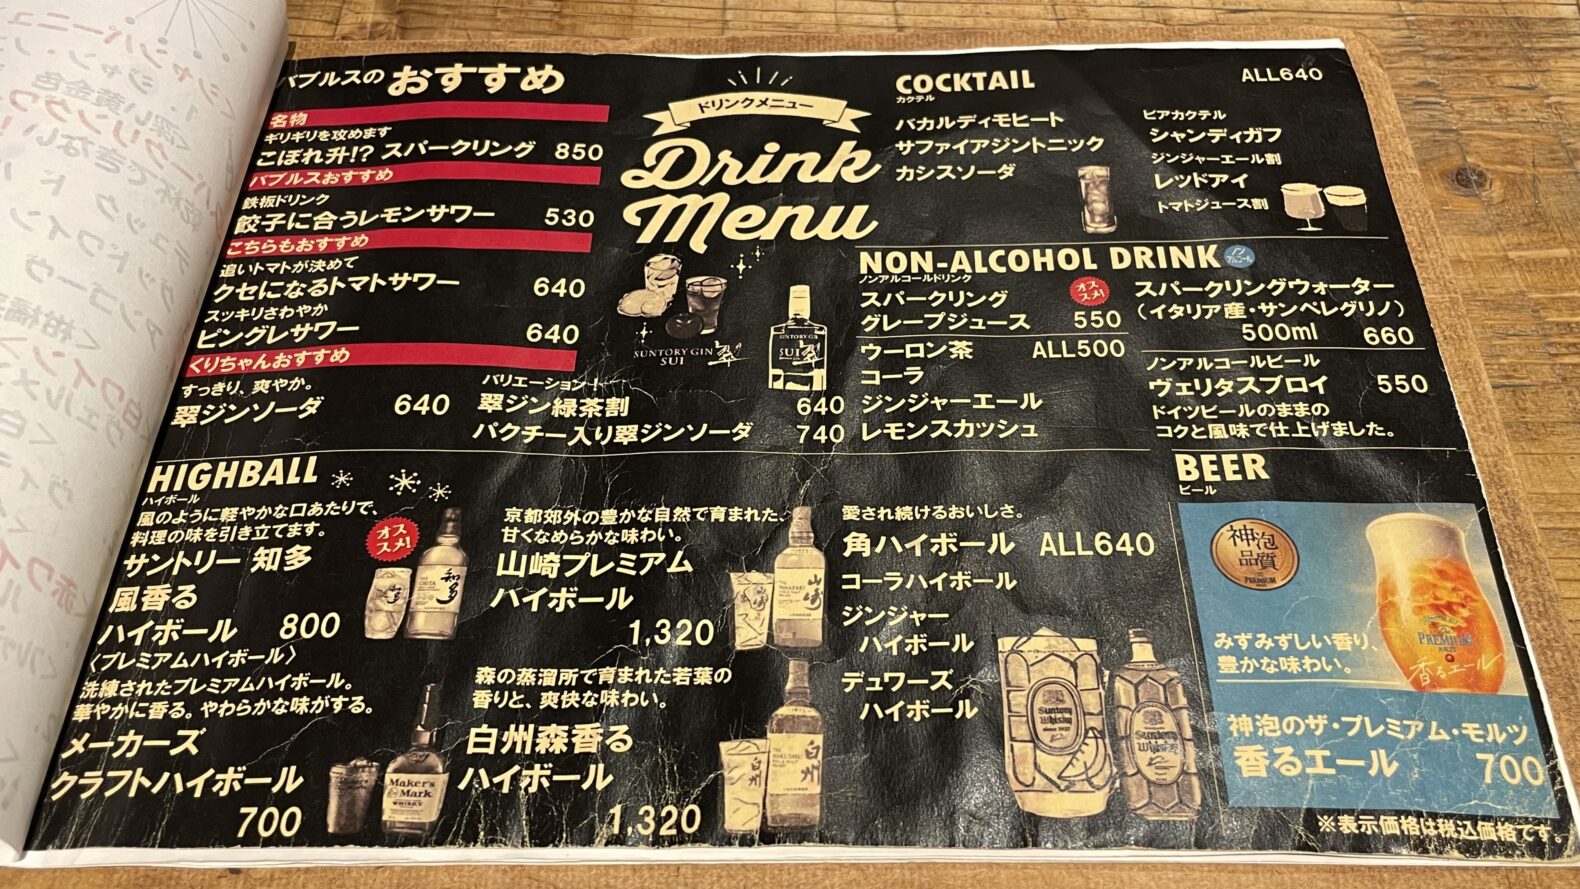 バブルスの おすすめ
名物
ギリギリを攻めます
こぼれ升!? スパークリング 850
バブルスおすすめ
鉄板ドリンク
餃子に合うレモンサワー 530
こちらもおすすめ
追いトマトが決めて
クセになるトマトサワー 640
スッキリさわやか
ピングレサワー 640
くりちゃんおすすめ
すっきり、爽やか。
翠ジンソーダ 640
バリエーション!
翠ジン緑茶割 640
パクチー入り翠ジンソーダ 740
ドリンクメニュー
Drink
Menu
SUNTORY GIN
SUI 翠
SUI
COCKTAIL ALL640
カクテル
バカルディモヒート
サファイアジントニック
カシスソーダ
ビアカクテル
シャンディガフ
ジンジャーエール割
レッドアイ
トマトジュース割
NON-ALCOHOL DRINK
ノン
アルコール
ノンアルコールドリンク
オス
スメ!
スパークリング
グレープジュース 550
ウーロン茶 ALL500
コーラ
ジンジャーエール
レモンスカッシュ
スパークリングウォーター
(イタリア産・サンペレグリノ)
500ml 660
ノンアルコールビール
ヴェリタスブロイ 550
ドイツビールのままの
コクと風味で仕上げました。
HIGHBALL
ハイボール
風のように軽やかな口あたりで、
料理の味を引き立てます。
オス
スメ!
サントリー 知多
風香る
ハイボール 800
〈プレミアムハイボール〉
洗練されたプレミアムハイボール。
華やかに香る。やわらかな味がする。
メーカーズ
クラフトハイボール
700
知多
Maker's
Mark
WHISKY
京都郊外の豊かな自然で育まれた、
甘くなめらかな味わい。
山崎プレミアム
ハイボール
1,320
山崎
森の蒸溜所で育まれた若葉の
香りと、爽快な味わい。
白州森香る
ハイボール
1,320
白州
愛され続けるおいしさ。
角ハイボール ALL640
コーラハイボール
ジンジャー
ハイボール
デュワーズ
ハイボール
Suntory
Whisky
since 1937
Suntory
Whisky
BEER
ビール
神泡
品質
PREMIUM
PREMIUM
香るエール
みずみずしい香り、
豊かな味わい。
神泡のザ・プレミアム・モルツ
香るエール 700
※表示価格は税込価格です。